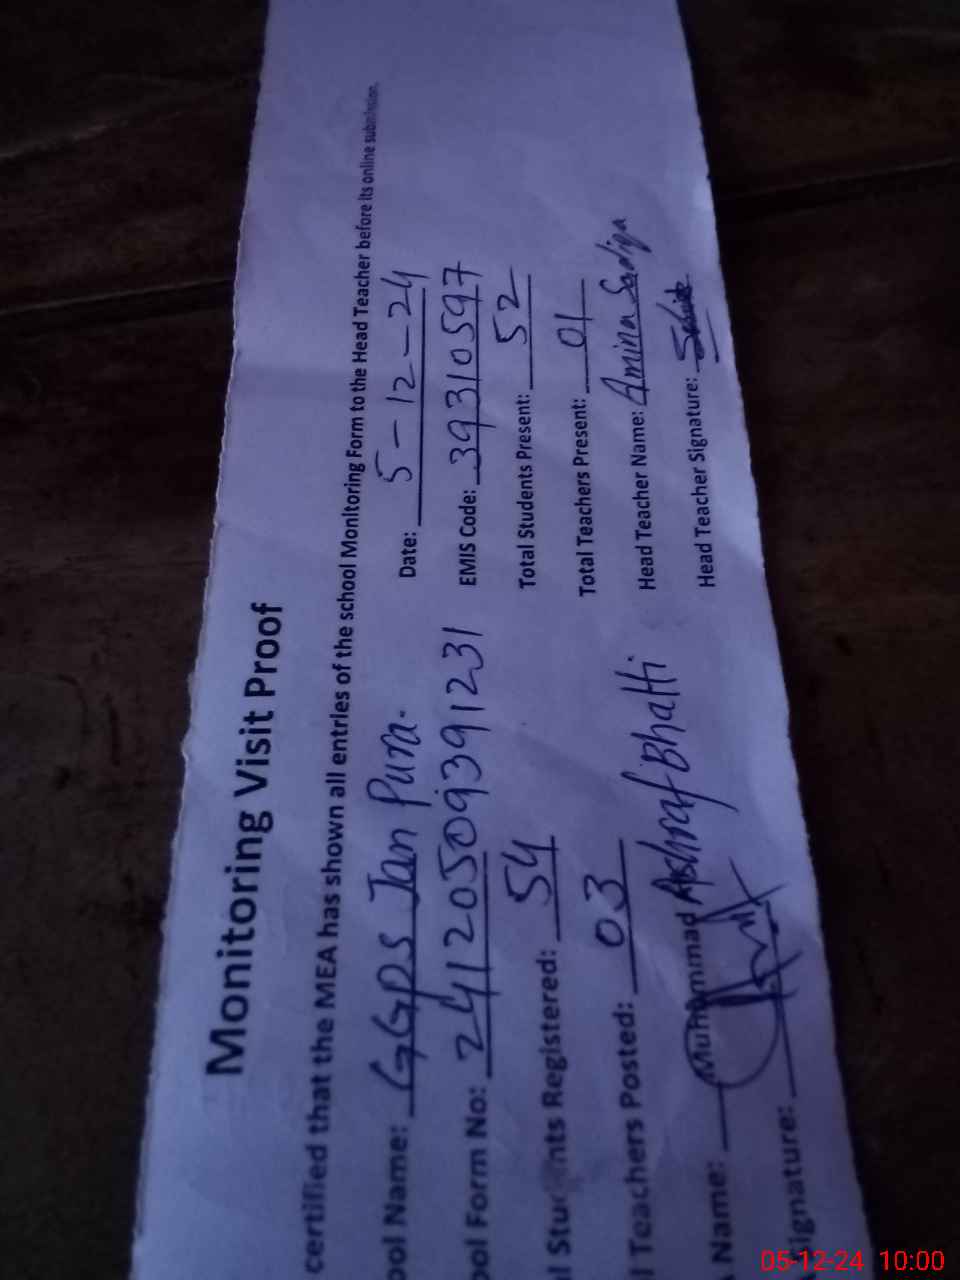 Monitoring Visit Proof
certified that the MEA has shown all entries of the school Monitoring Form to the Head Teacher before its online submission.
ool Name: GGPS Jan Pura. Date: 5-12-24
ool Form No: 24120509391231 EMIS Code: 39310597
l Students Registered: 54 Total Students Present: 52
l Teachers Posted: 03 Total Teachers Present: 01
Name: Muhammad Ashraf Bhatti Head Teacher Name: Amina Sadiqa
Signature: Head Teacher Signature:
05-12-24 10:00